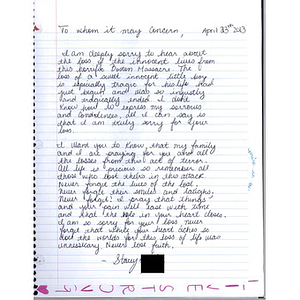 To whom it may concern, April 23th 2013
I am deeply sorry to hear about
the loss of the innocent lives from
this horrific Boston Massacre. The
loss of a sweet innocent little boy
is especially tragic for his life had
just begun and also so unjustly
and tragically ended. I don't
know how to express my sorrows
and condolences, all I can say is
that I am truly sorry for your
loss.
I want you to know that my family
and I are praying for you and all
the losses from this act of terror.
All life is precious so remember all
those who lost theirs in this attack.
Never forget the lives of the lost,
never forget their smiles and laughs.
Never forget! I pray that things
and your pain will ease with time
and that the hole in your heart closes.
I am so sorry for your loss never
forget that while your heart aches so
does the worlds for this loss of life was
unnessicary. Never lose faith.
- Stacy